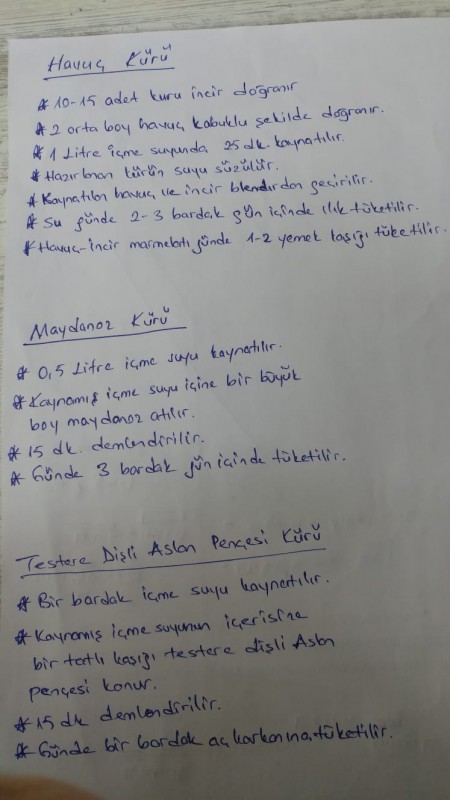 Havuç Kürü
* 10-15 adet kuru incir doğranır
* 2 orta boy havuç kabuklu şekilde doğranır.
* 1 Litre içme suyunda 25 dk. kaynatılır.
* Hazırlanan kürün suyu süzülür.
* Kaynatılan havuç ve incir blendırdan geçirilir.
* Su günde 2-3 bardak gün içinde ılık tüketilir.
* Havuç-incir marmelatı günde 1-2 yemek kaşığı tüketilir.
Maydanoz Kürü
* 0,5 Litre içme suyu kaynatılır.
* Kaynamış içme suyu içine bir büyük
boy maydanoz atılır.
* 15 dk. demlendirilir.
* Günde 3 bardak gün içinde tüketilir.
Testere Dişli Aslan Pençesi Kürü
* Bir bardak içme suyu kaynatılır.
* Kaynamış içme suyunun içerisine
bir tatlı kaşığı testere dişli Aslan
pençesi konur.
* 15 dk demlendirilir.
* Günde bir bardak aç karkarına tüketilir.